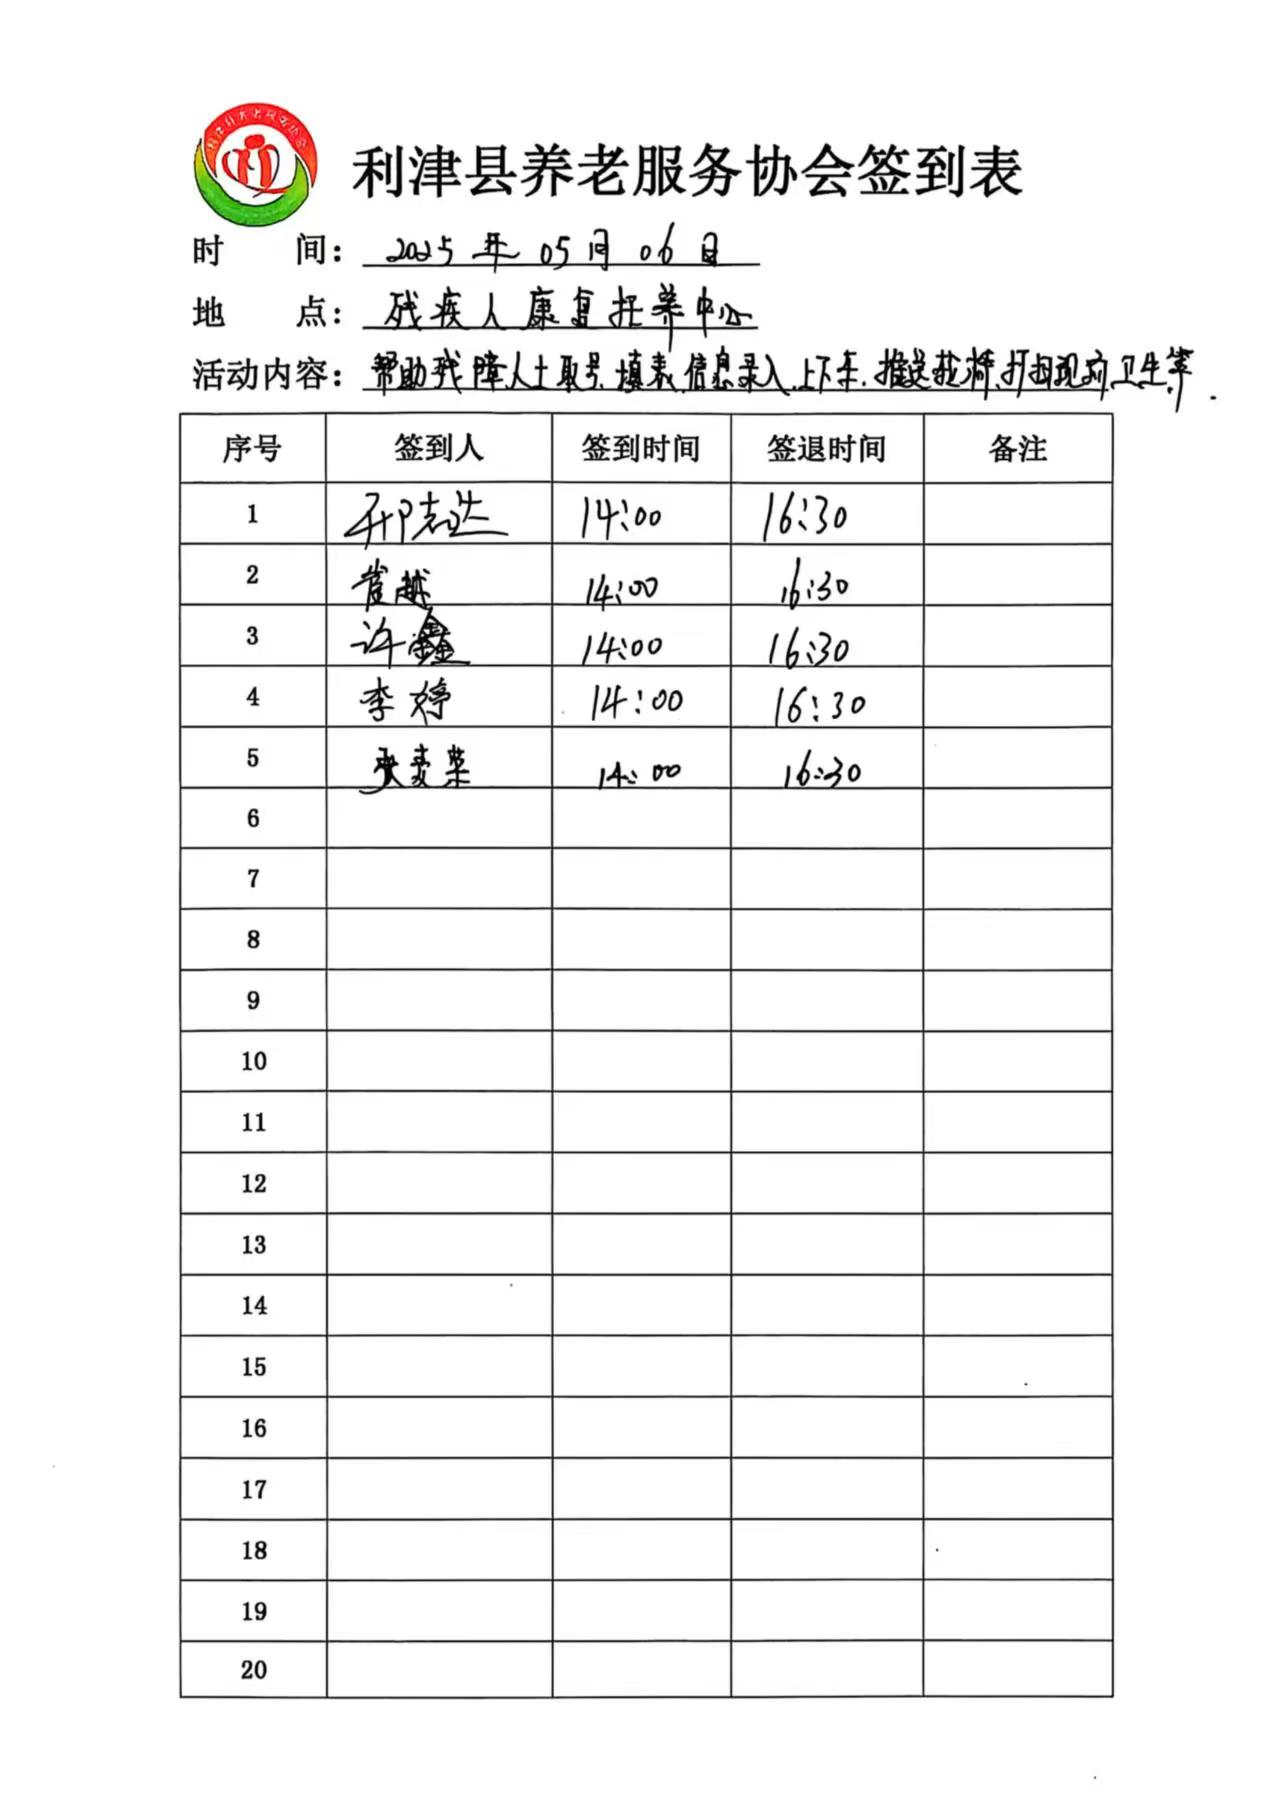 利津县养老服务协会
利津县养老服务协会签到表
时 间：2025年05月06日
地 点：残疾人康复托养中心
活动内容：帮助残障人士取号、填表、信息录入、上下车、推送轮椅、打扫现场卫生等.
序号 签到人 签到时间 签退时间 备注
1 邢志达 14:00 16:30
2 崔越 14:00 16:30
3 许鑫 14:00 16:30
4 李婷 14:00 16:30
5 张麦菜 14:00 16:30
6
7
8
9
10
11
12
13
14
15
16
17
18
19
20